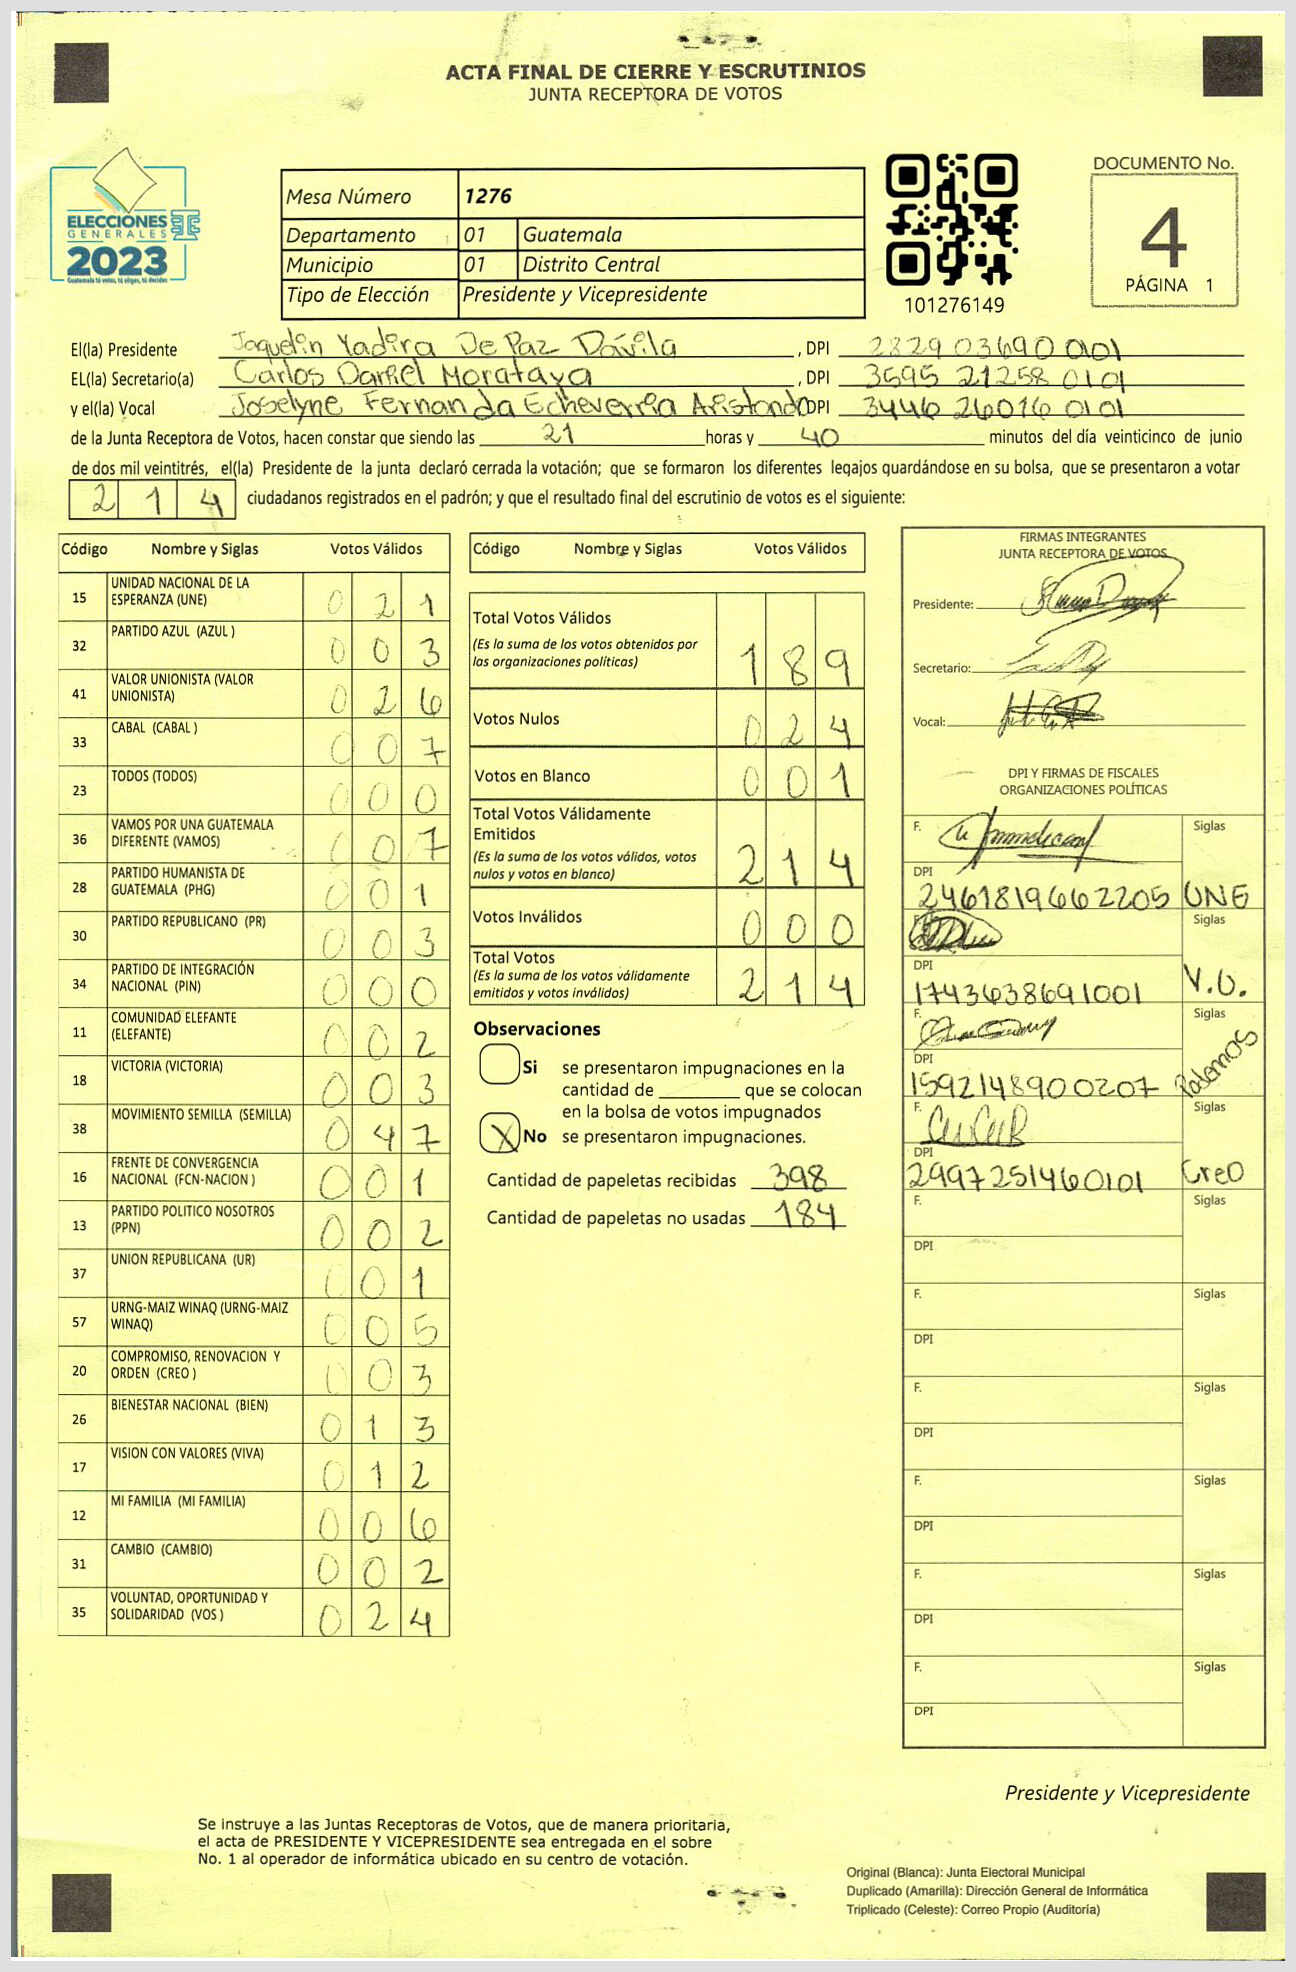 ACTA FINAL DE CIERRE Y ESCRUTINIOS
JUNTA RECEPTORA DE VOTOS
ELECCIONES
GENERALES
2023
Guatemala tú votas, tú eliges, tú decides
Mesa Número 1276
Departamento 01 Guatemala
Municipio 01 Distrito Central
Tipo de Elección Presidente y Vicepresidente
101276149
DOCUMENTO No.
4
PÁGINA 1
El(la) Presidente Jaquelin Yadira De Paz Dávila , DPI 2829 03690 0101
EL(la) Secretario(a) Carlos Daniel Morataya , DPI 3595 21258 0101
y el(la) Vocal Joselyne Fernanda Echeverria Aristondo DPI 3446 26016 0101
de la Junta Receptora de Votos, hacen constar que siendo las 21 horas y 40 minutos del día veinticinco de junio
de dos mil veintitrés, el(la) Presidente de la junta declaró cerrada la votación; que se formaron los diferentes legajos guardándose en su bolsa, que se presentaron a votar
214 ciudadanos registrados en el padrón; y que el resultado final del escrutinio de votos es el siguiente:
Código Nombre y Siglas Votos Válidos
15 UNIDAD NACIONAL DE LA ESPERANZA (UNE) 0 2 1
32 PARTIDO AZUL (AZUL ) 0 0 3
41 VALOR UNIONISTA (VALOR UNIONISTA) 0 2 6
33 CABAL (CABAL ) 0 0 7
23 TODOS (TODOS) 0 0 0
36 VAMOS POR UNA GUATEMALA DIFERENTE (VAMOS) 0 0 7
28 PARTIDO HUMANISTA DE GUATEMALA (PHG) 0 0 1
30 PARTIDO REPUBLICANO (PR) 0 0 3
34 PARTIDO DE INTEGRACIÓN NACIONAL (PIN) 0 0 0
11 COMUNIDAD ELEFANTE (ELEFANTE) 0 0 2
18 VICTORIA (VICTORIA) 0 0 3
38 MOVIMIENTO SEMILLA (SEMILLA) 0 4 7
16 FRENTE DE CONVERGENCIA NACIONAL (FCN-NACION ) 0 0 1
13 PARTIDO POLITICO NOSOTROS (PPN) 0 0 2
37 UNION REPUBLICANA (UR) 0 0 1
57 URNG-MAIZ WINAQ (URNG-MAIZ WINAQ) 0 0 5
20 COMPROMISO, RENOVACION Y ORDEN (CREO ) 0 0 3
26 BIENESTAR NACIONAL (BIEN) 0 1 3
17 VISION CON VALORES (VIVA) 0 1 2
12 MI FAMILIA (MI FAMILIA) 0 0 6
31 CAMBIO (CAMBIO) 0 0 2
35 VOLUNTAD, OPORTUNIDAD Y SOLIDARIDAD (VOS ) 0 2 4
Código Nombre y Siglas Votos Válidos
Total Votos Válidos
(Es la suma de los votos obtenidos por
las organizaciones políticas) 1 8 9
Votos Nulos 0 2 4
Votos en Blanco 0 0 1
Total Votos Válidamente
Emitidos
(Es la suma de los votos válidos, votos
nulos y votos en blanco) 2 1 4
Votos Inválidos 0 0 0
Total Votos
(Es la suma de los votos válidamente
emitidos y votos inválidos) 2 1 4
Observaciones
Si se presentaron impugnaciones en la
cantidad de ________ que se colocan
en la bolsa de votos impugnados
X No se presentaron impugnaciones.
Cantidad de papeletas recibidas 398
Cantidad de papeletas no usadas 184
FIRMAS INTEGRANTES
JUNTA RECEPTORA DE VOTOS
Presidente:
Secretario:
Vocal:
DPI Y FIRMAS DE FISCALES
ORGANIZACIONES POLÍTICAS
F. Siglas
DPI
2461819662205 UNE
Siglas
DPI
1743638691001 V.U.
F. Siglas
DPI
1592148900207 Podemos
F. Siglas
DPI
2997251460101 Creo
F. Siglas
DPI
F. Siglas
DPI
F. Siglas
DPI
F. Siglas
DPI
F. Siglas
DPI
F. Siglas
DPI
Presidente y Vicepresidente
Se instruye a las Juntas Receptoras de Votos, que de manera prioritaria,
el acta de PRESIDENTE Y VICEPRESIDENTE sea entregada en el sobre
No. 1 al operador de informática ubicado en su centro de votación.
Original (Blanca): Junta Electoral Municipal
Duplicado (Amarilla): Dirección General de Informática
Triplicado (Celeste): Correo Propio (Auditoría)